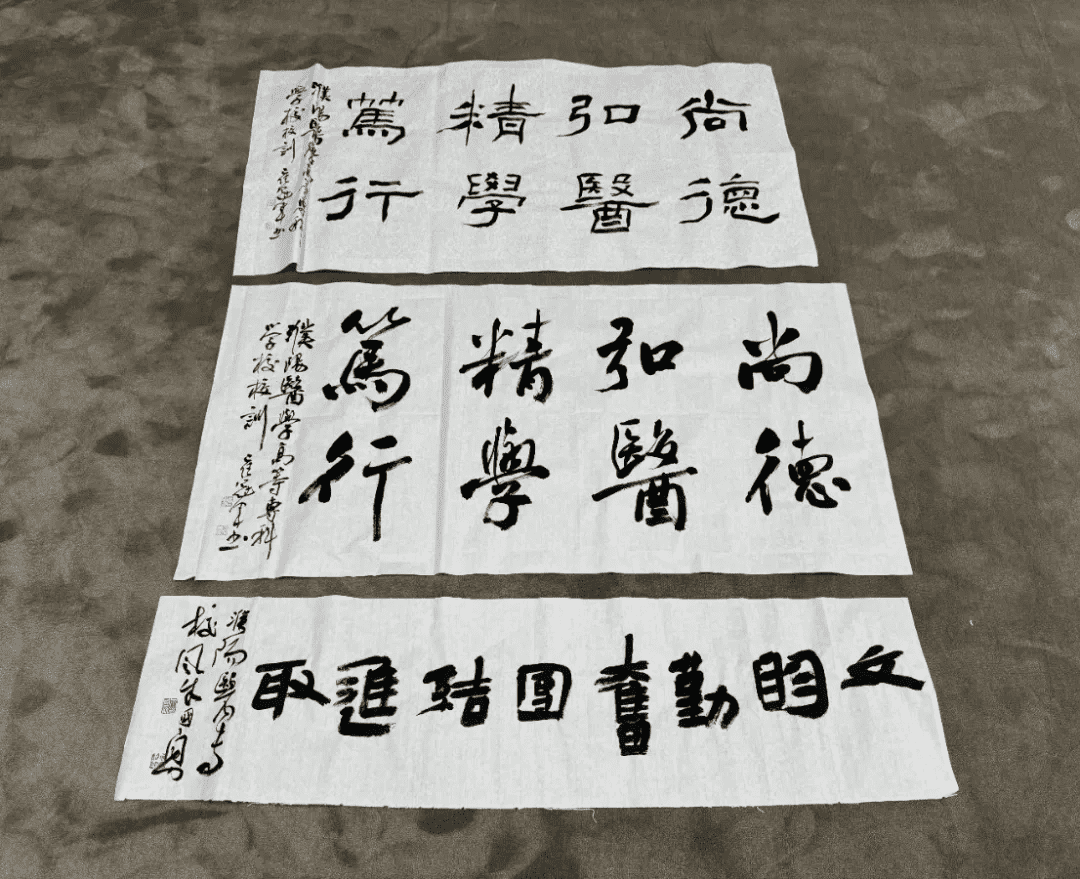 尚德
弘醫
精學
篤行
濮陽醫學高等專科
学校校訓
尚德
弘醫
精學
篤行
濮陽醫學高等專科
学校校訓
文明勤奮團結進取
濮陽醫
校風